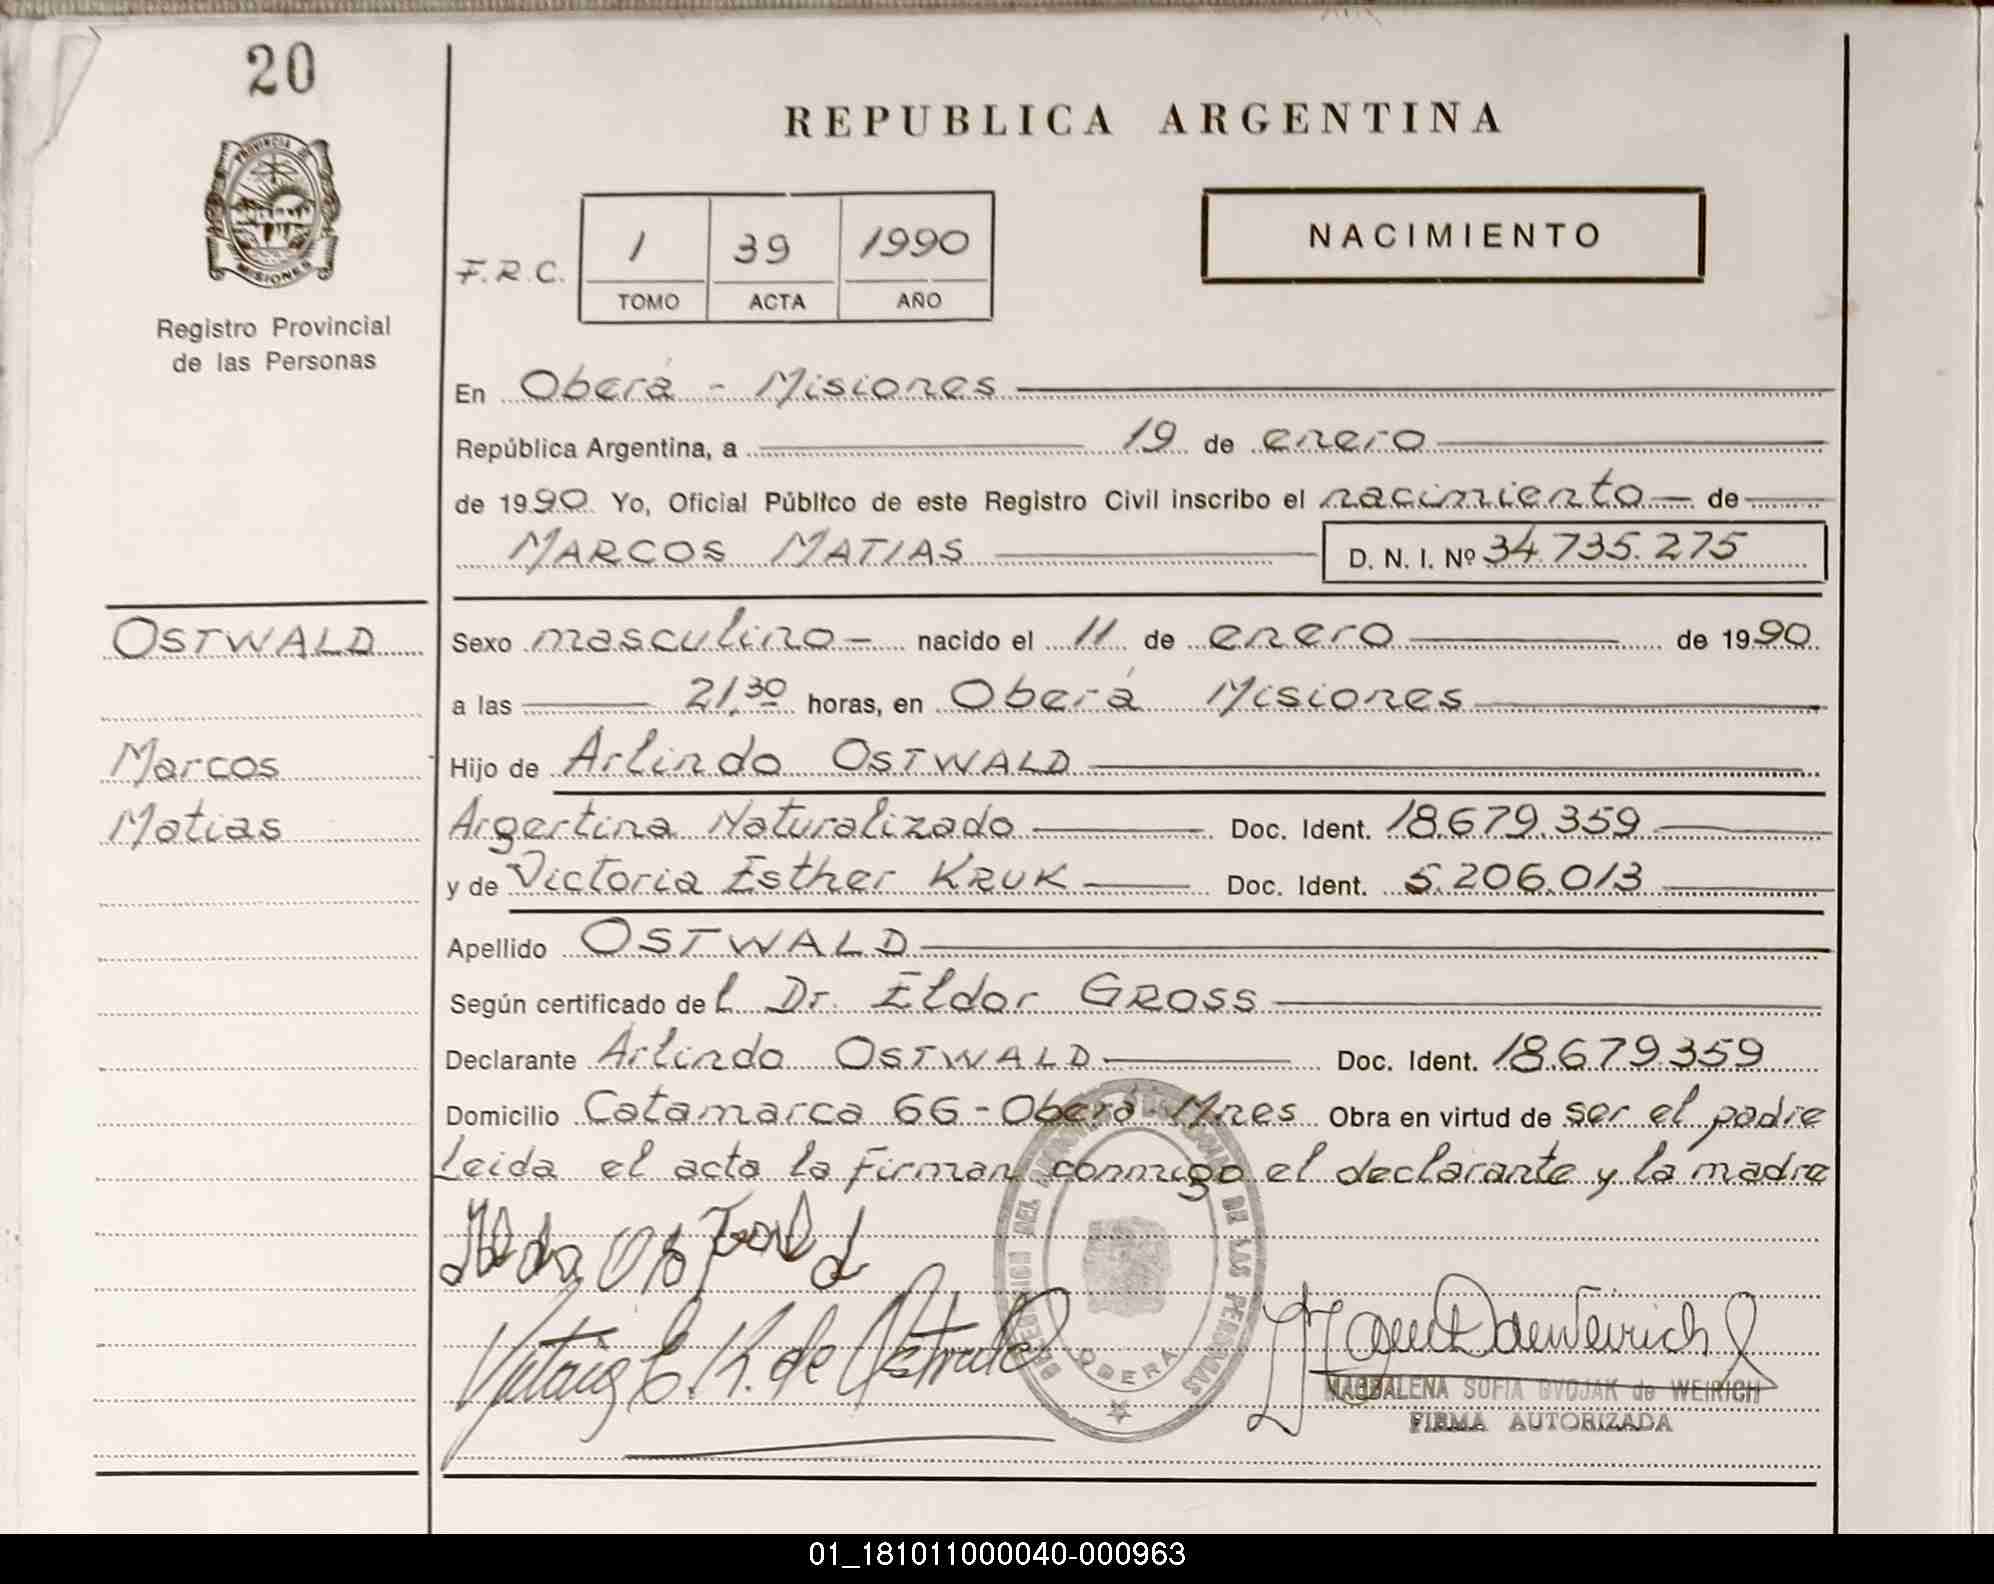 20
REPUBLICA ARGENTINA
PROVINCIA DE
MISIONES
Registro Provincial
de las Personas
F.R.C.
1 39 1990
TOMO ACTA AÑO
NACIMIENTO
En Oberá - Misiones
República Argentina, a 19 de enero
de 1990 Yo, Oficial Público de este Registro Civil inscribo el nacimiento de
MARCOS MATIAS D. N. I. Nº 34.735.275
OSTWALD
Marcos
Matias
Sexo masculino nacido el 11 de enero de 1990
a las 21,30 horas, en Oberá Misiones
Hijo de Arlindo OSTWALD
Argentina Naturalizado Doc. Ident. 18.679.359
y de Victoria Esther KRUK Doc. Ident. 5.206.013
Apellido OSTWALD
Según certificado del Dr. Eldor GROSS
Declarante Arlindo OSTWALD Doc. Ident. 18.679.359
Domicilio Catamarca 66 - Oberá - Mnes Obra en virtud de ser el padre
Leida el acta la firman conmigo el declarante y la madre
DE LAS PERSONAS
OBERA
MAGDALENA SOFIA GVOJAK de WEIRICH
FIRMA AUTORIZADA
01_181011000040-000963